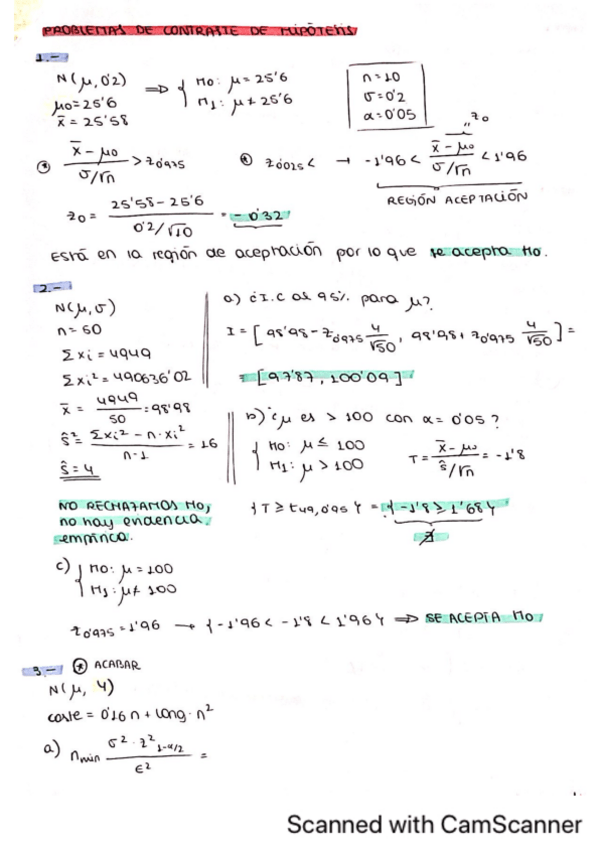 PROBLEMAS DE CONTRASTE DE HIPÓTESIS
1.-
N(μ, 0'2) ⟹ { H0: μ = 25'6
μ0 = 25'6 H1: μ ≠ 25'6
x̄ = 25'58
n = 10
σ = 0'2
α = 0'05
z0
(x̄ - μ0)/(σ/√n) > z0'975
z0'025 < → -1'96 < (x̄ - μ0)/(σ/√n) < 1'96
REGIÓN ACEPTACIÓN
z0 = (25'58 - 25'6)/(0'2/√10) = -0'32
Está en la región de aceptación por lo que se acepta H0.
2.-
N(μ, σ)
n = 50
Σxi = 4949
Σxi² = 490636'02
x̄ = 4949/50 = 98'98
ŝ² = (Σxi² - n·xi²)/(n-1) = 16
ŝ = 4
a) ¿I.C al 95% para μ?
I = [98'98 - z0'975 4/√50, 98'98 + z0'975 4/√50] =
= [97'87, 100'09]
b) ¿μ es > 100 con α = 0'05?
{ H0: μ ≤ 100
H1: μ > 100
T = (x̄ - μ0)/(ŝ/√n) = -1'8
NO RECHAZAMOS H0,
no hay evidencia
empírica.
{T ≥ t49,0'95} = {-1'8 ≥ 1'68}
∄
c) { H0: μ = 100
H1: μ ≠ 100
z0'975 = 1'96 → {-1'96 < -1'8 < 1'96} ⟹ SE ACEPTA H0
3.- * ACABAR
N(μ, 4)
coste = 0'16n + long·n²
a) nmin (σ²·z²1-α/2)/ε² =
Scanned with CamScanner